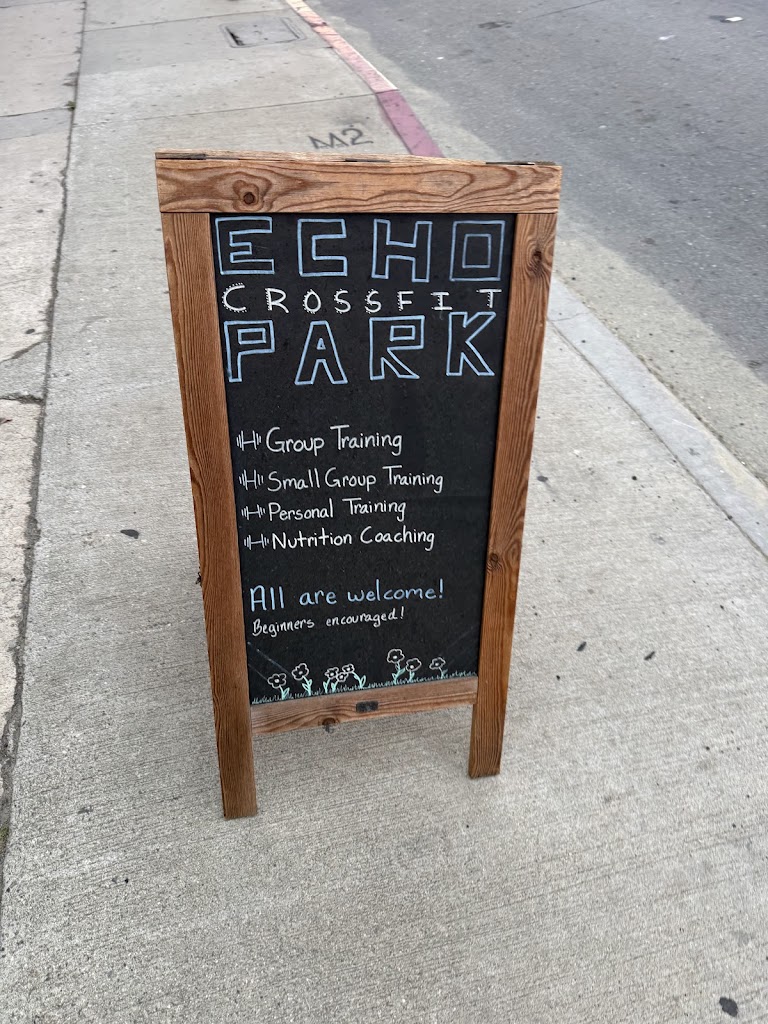 M2
ECHO
CROSSFIT
PARK
Group Training
Small Group Training
Personal Training
Nutrition Coaching
All are welcome!
Beginners encouraged!